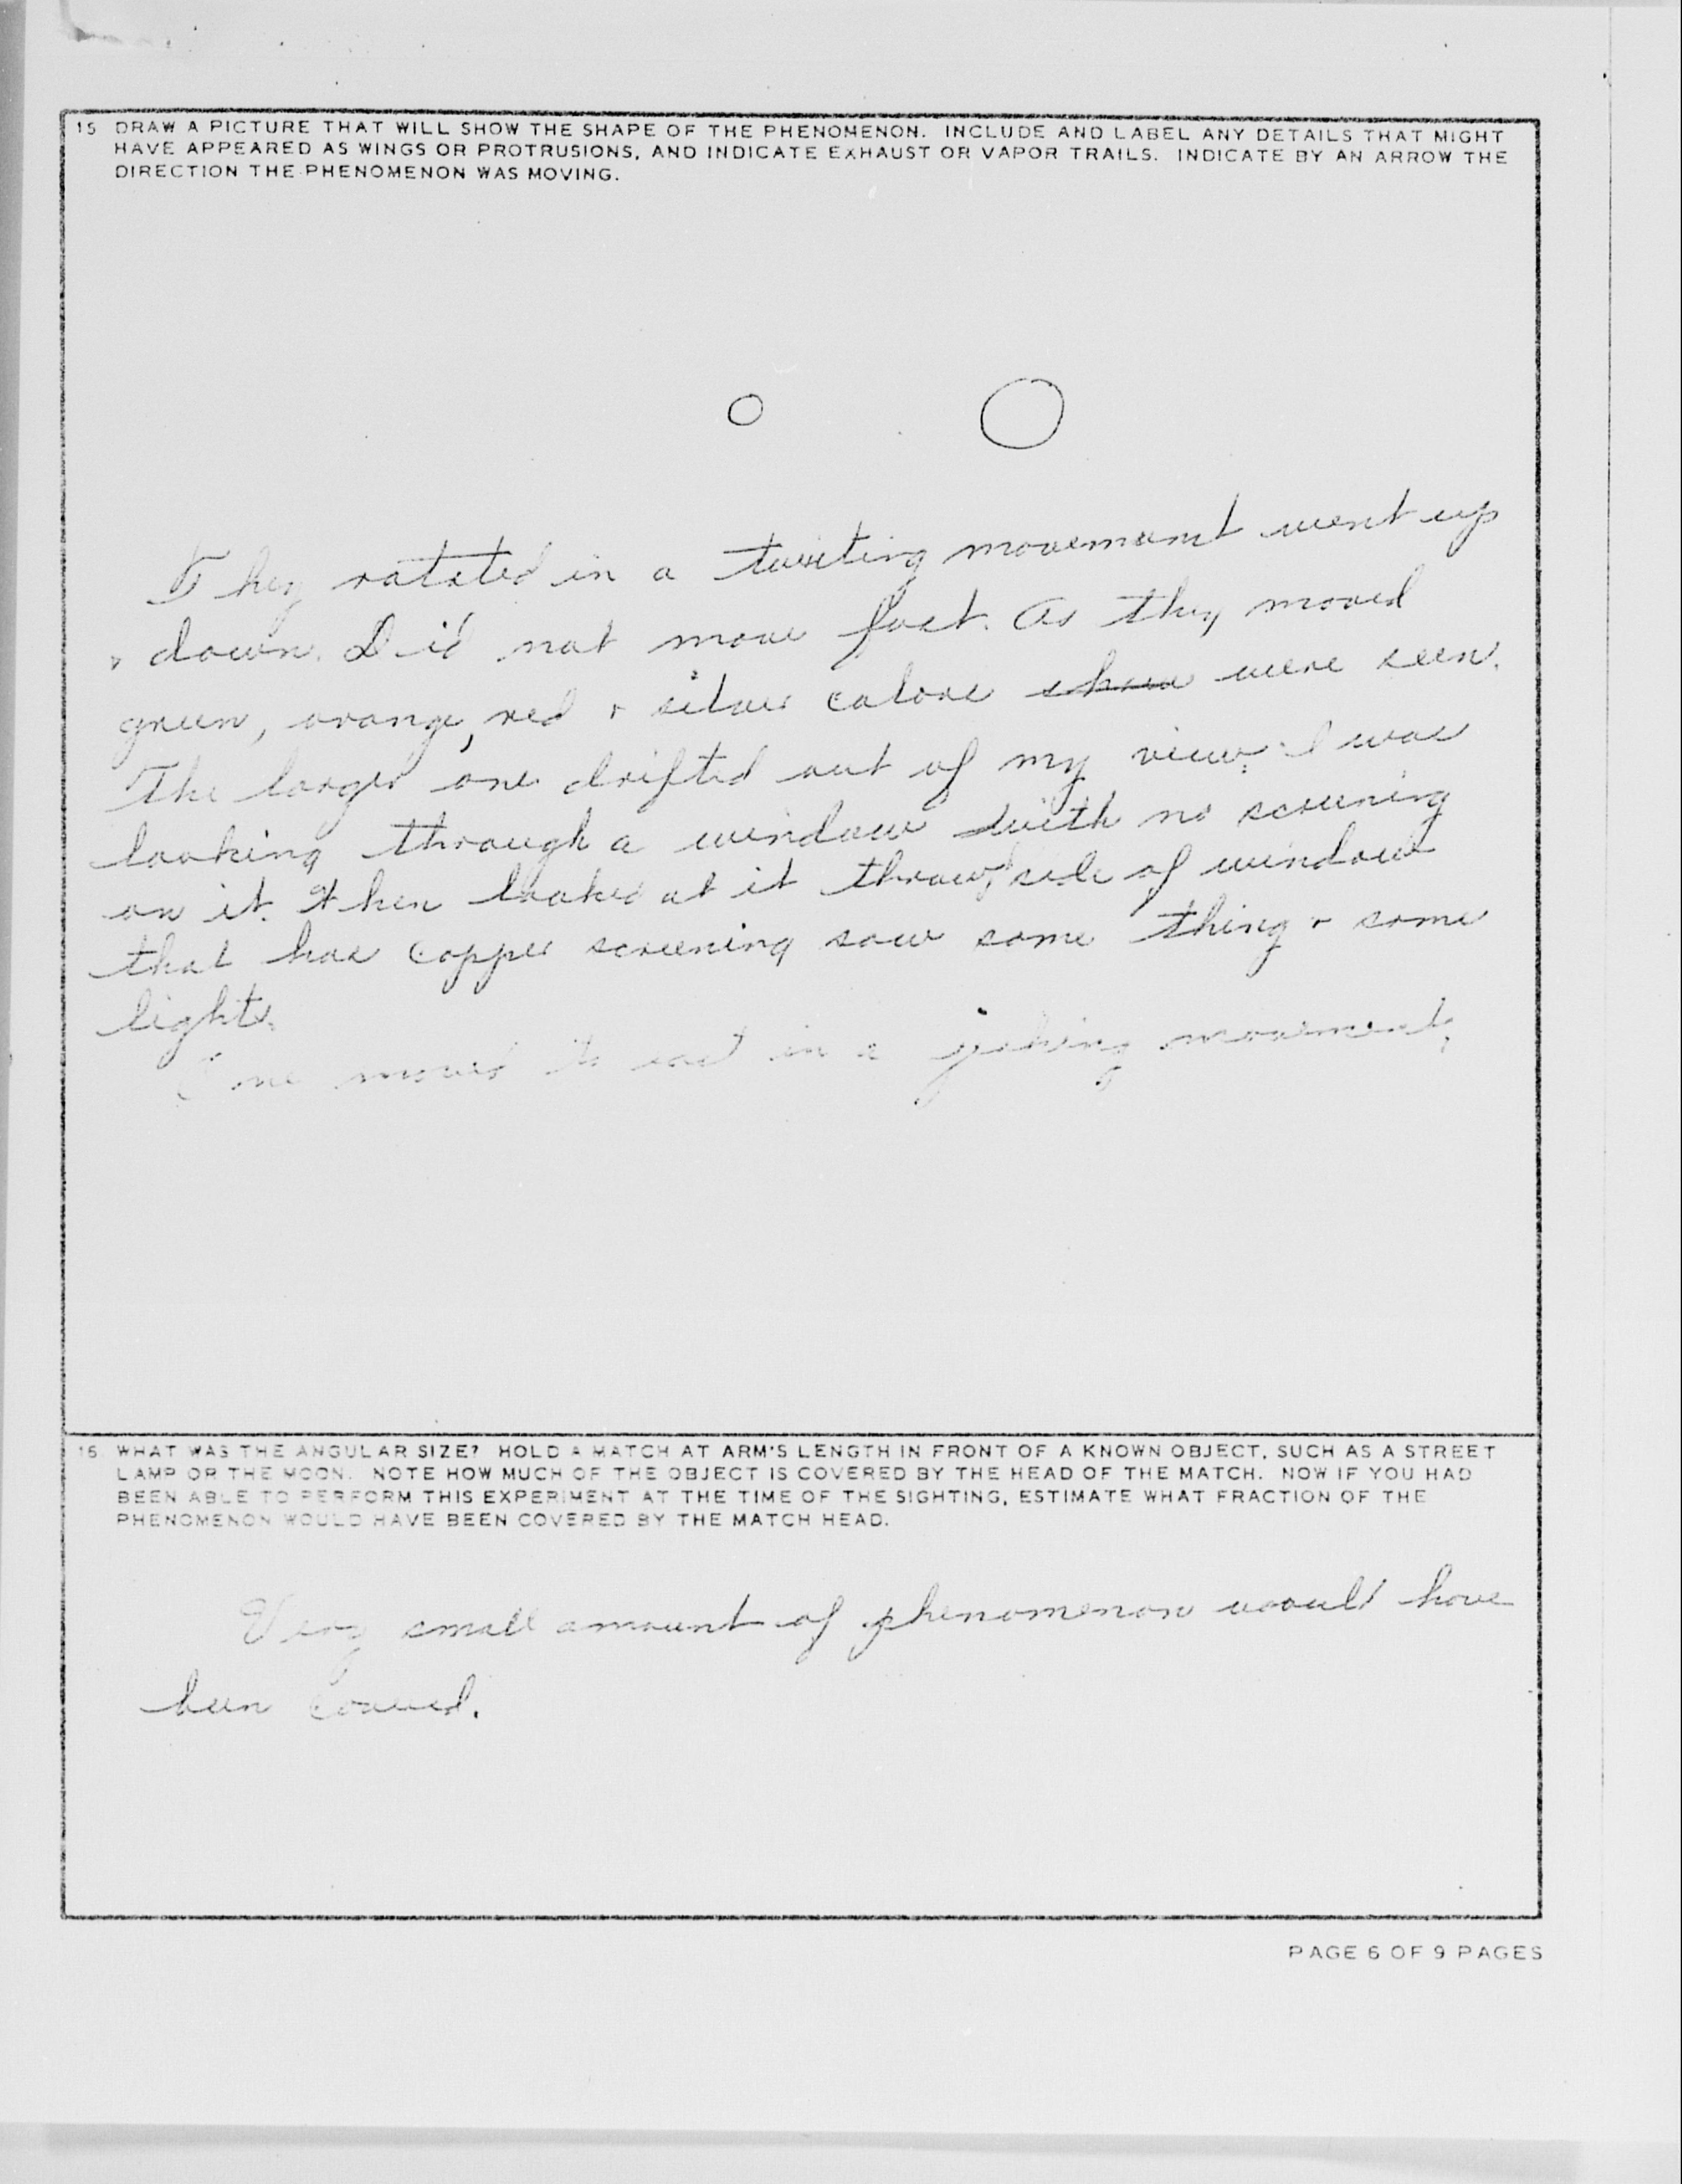 15 DRAW A PICTURE THAT WILL SHOW THE SHAPE OF THE PHENOMENON. INCLUDE AND LABEL ANY DETAILS THAT MIGHT
HAVE APPEARED AS WINGS OR PROTRUSIONS, AND INDICATE EXHAUST OR VAPOR TRAILS. INDICATE BY AN ARROW THE
DIRECTION THE PHENOMENON WAS MOVING.
They rotated in a twisting movement went up
& down. Did not move fast. As they moved
green, orange, red & silver colors were seen.
The larger one drifted out of my view. I was
looking through a window with no screening
on it. When looked at it side of window
that has copper screening saw same thing & same
lights.
One moved to east in a movement.
16. WHAT WAS THE ANGULAR SIZE? HOLD A MATCH AT ARM'S LENGTH IN FRONT OF A KNOWN OBJECT, SUCH AS A STREET
LAMP OR THE MOON. NOTE HOW MUCH OF THE OBJECT IS COVERED BY THE HEAD OF THE MATCH. NOW IF YOU HAD
BEEN ABLE TO PERFORM THIS EXPERIMENT AT THE TIME OF THE SIGHTING, ESTIMATE WHAT FRACTION OF THE
PHENOMENON WOULD HAVE BEEN COVERED BY THE MATCH HEAD.
Very small amount of phenomenon would have
been covered.
PAGE 6 OF 9 PAGES